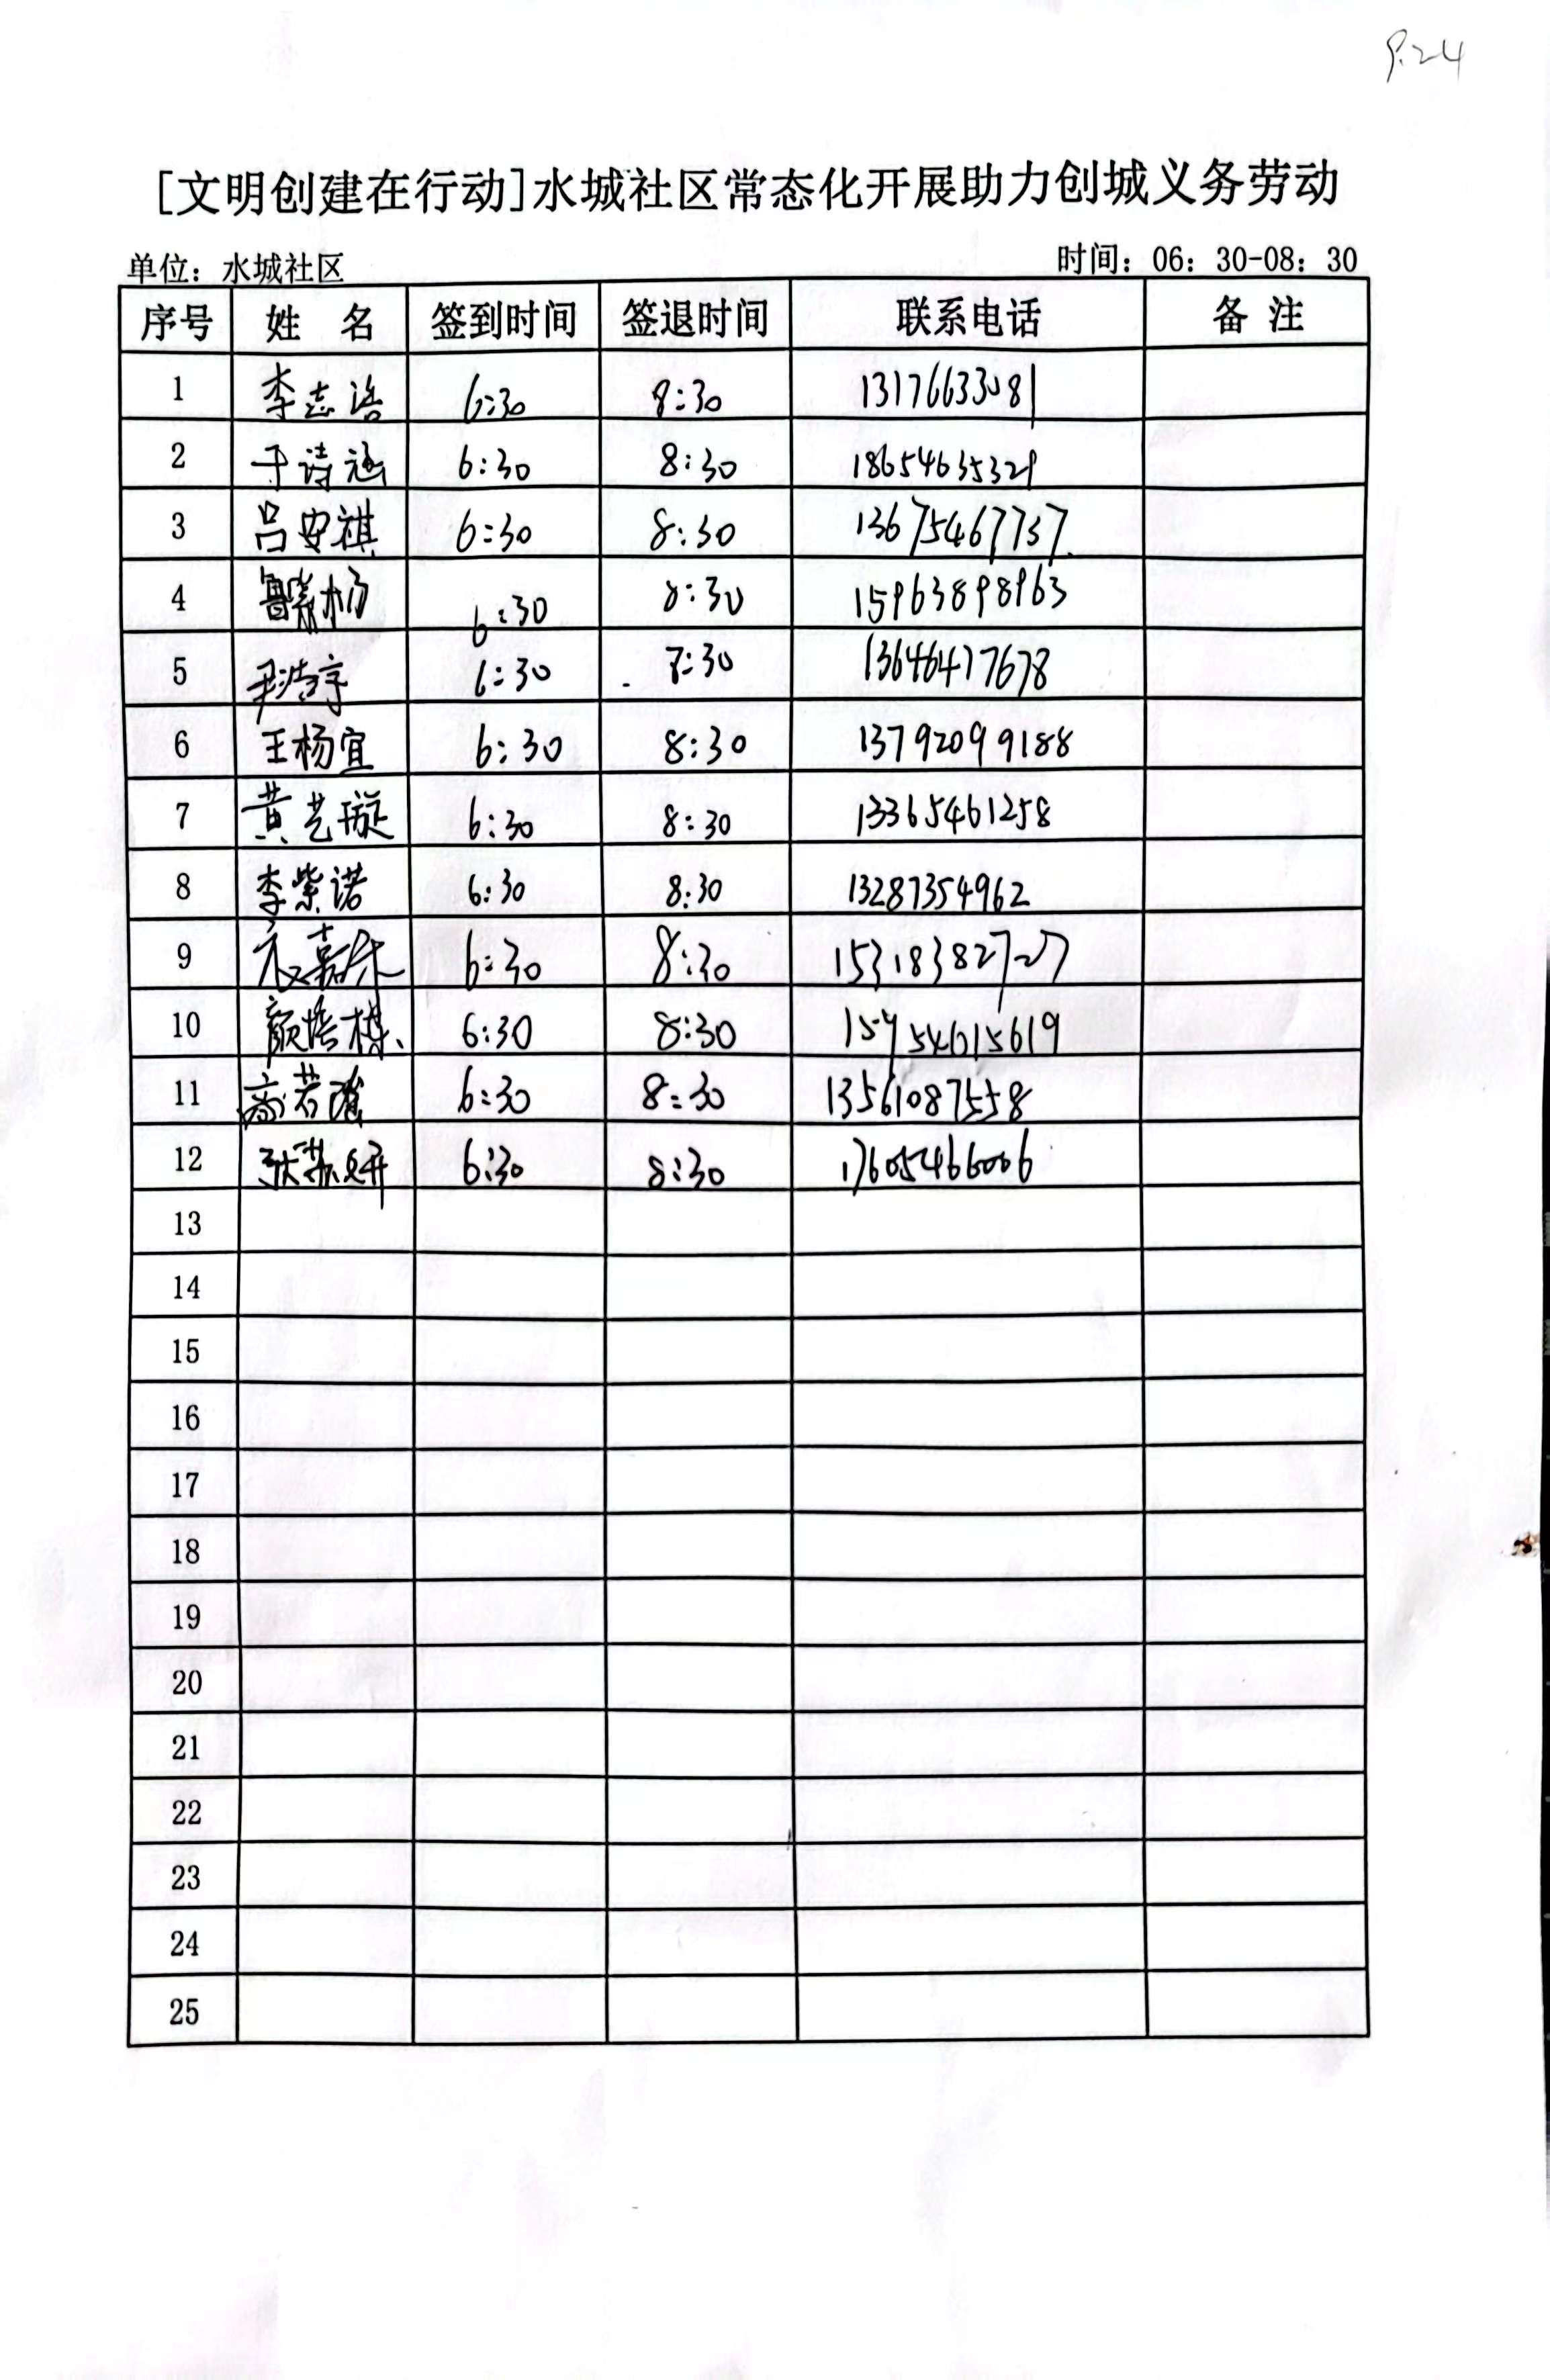 9.24
[文明创建在行动]水城社区常态化开展助力创城义务劳动
单位：水城社区 时间：06：30-08：30
序号 姓 名 签到时间 签退时间 联系电话 备 注
1 李志浩 6:30 8:30 13176633081
2 于诗涵 6:30 8:30 18654635329
3 吕安祺 6:30 8:30 13675467737
4 6:30 8:30 15963898963
5 尹浩宇 6:30 7:30 13646477678
6 王杨宜 6:30 8:30 13792099188
7 黄艺璇 6:30 8:30 13365461258
8 李紫诺 6:30 8:30 13287354962
9 6:30 8:30 15318382727
10 颜培棋 6:30 8:30 15954615619
11 6:30 8:30 13561087558
12 张苏妍 6:30 8:30 17605466006
13
14
15
16
17
18
19
20
21
22
23
24
25